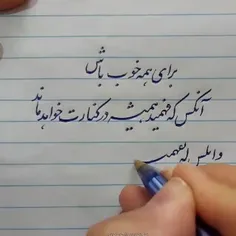 برای همه خوب باش
آنکس که فهمید همیشه در کنارت خواهد ماند
وانکس که نفهمید